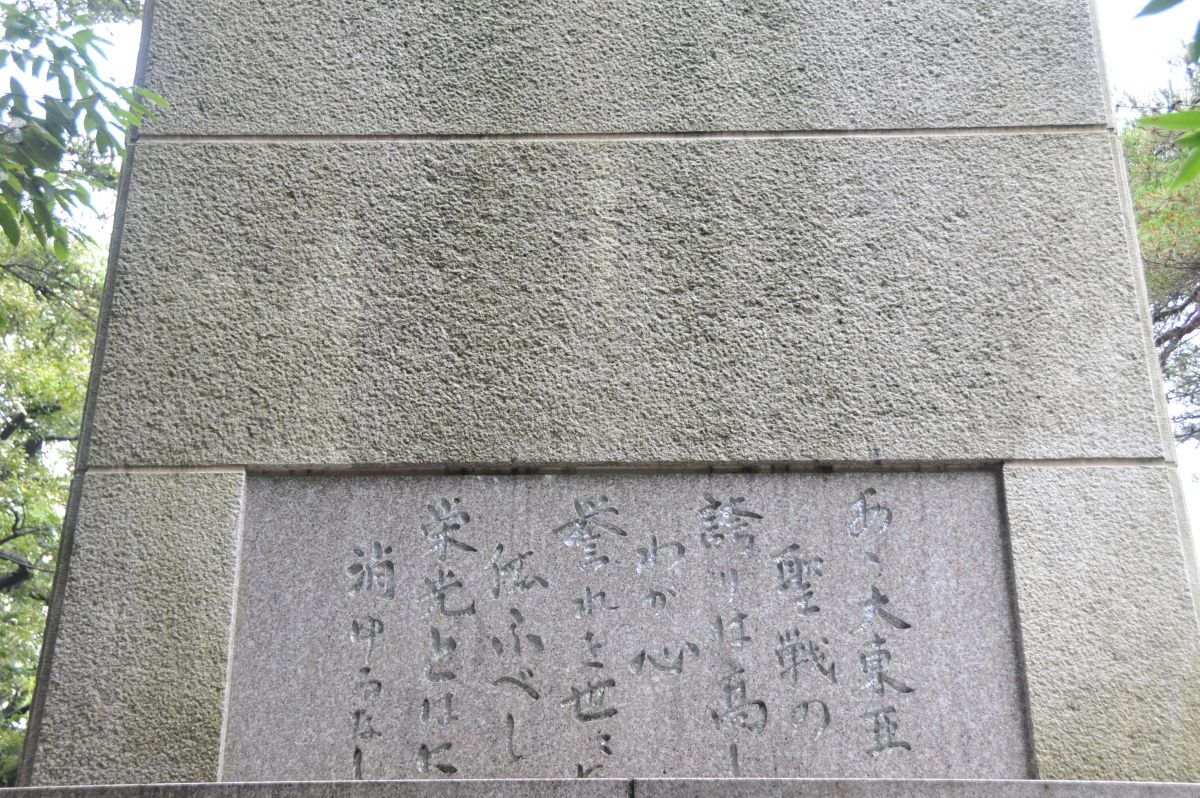 あゝ大東亜
聖戦の
誇りは高し
わが心
誉れを世々に
伝ふべし
栄光とはに
消ゆるなし